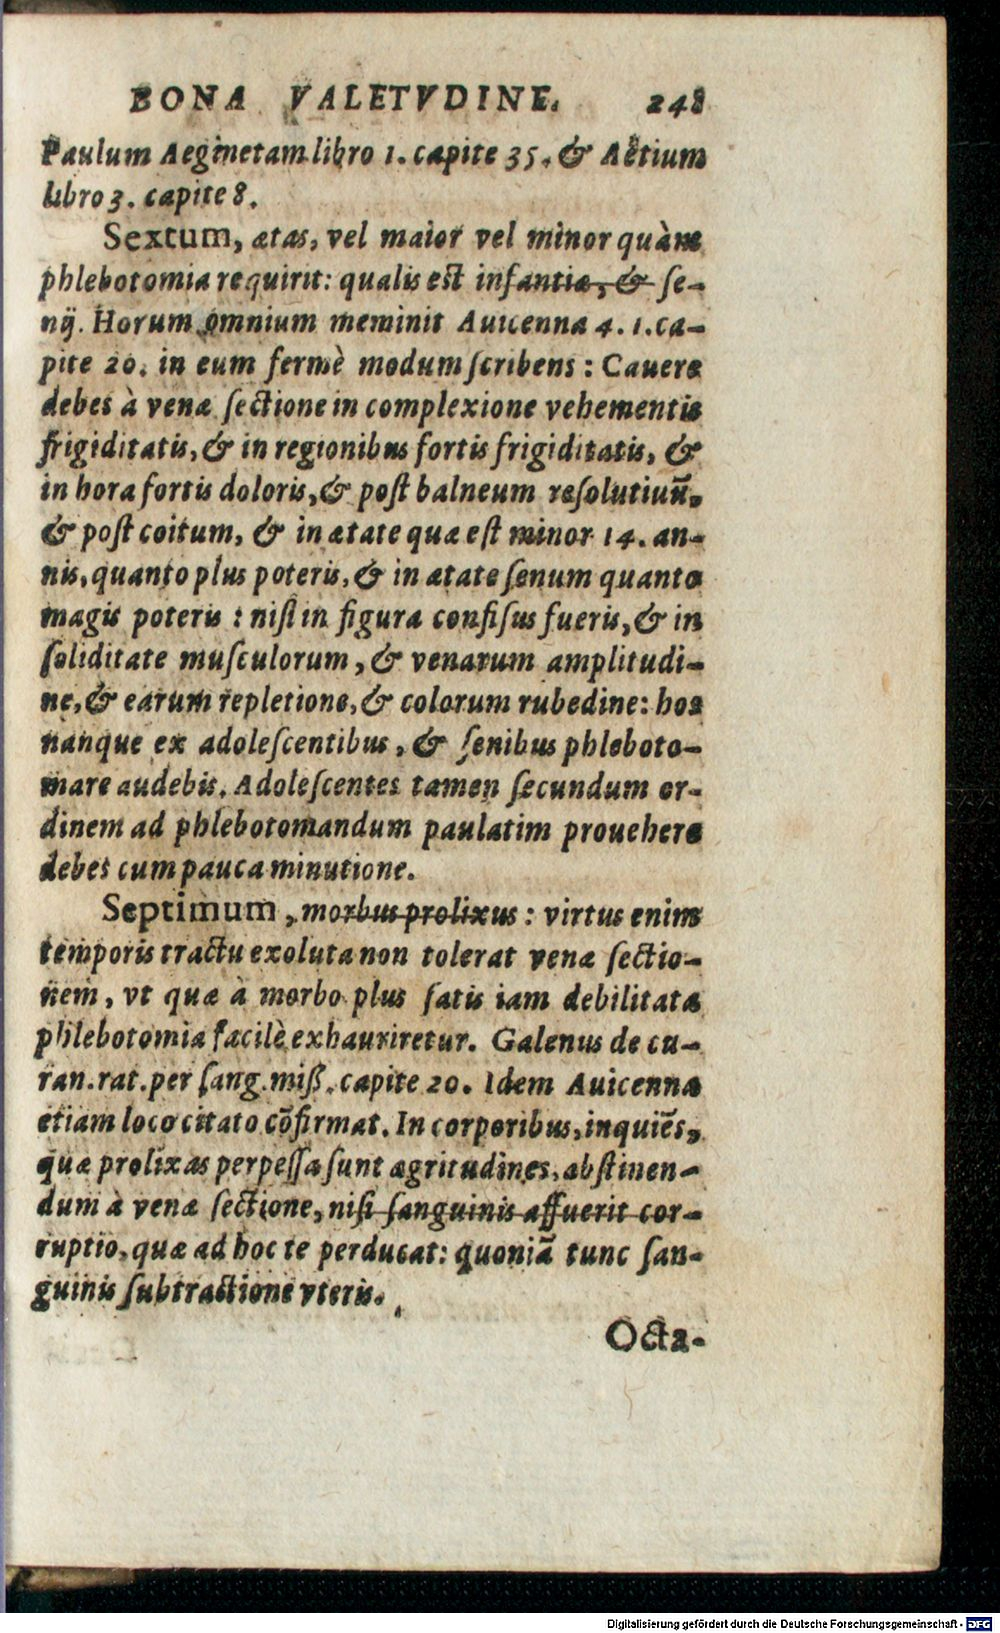 BONA VALETVDINE. 248
Paulum Aeginetam libro 1. capite 35. & Aëtium
libro 3. capite 8.
Sextum, ætas, vel maior vel minor quàm
phlebotomia requirit: qualis est infantiæ, & se-
nij. Horum omnium meminit Auicenna 4. 1. ca-
pite 20. in eum fermè modum scribens: Cauere
debes à venæ sectione in complexione vehementis
frigiditatis, & in regionibus fortis frigiditatis, &
in hora fortis doloris, & post balneum resolutiuũ,
& post coitum, & in ætate quæ est minor 14. an-
nis, quanto plus poteris, & in ætate senum quanto
magis poteris: nisi in figura confisus fueris, & in
soliditate musculorum, & venarum amplitudi-
ne, & earum repletione, & colorum rubedine: hos
nanque ex adolescentibus, & senibus phleboto-
mare audebis. Adolescentes tamen secundum or-
dinem ad phlebotomandum paulatim prouehere
debes cum pauca minutione.
Septimum, morbus prolixus: virtus enim
temporis tractu exoluta non tolerat venæ sectio-
nem, vt quæ à morbo plus satis iam debilitata
phlebotomia facilè exhauriretur. Galenus de cu-
ran. rat. per sang. miß. capite 20. Idem Auicenna
etiam loco citato cõfirmat. In corporibus, inquiẽs,
quæ prolixas perpessa sunt ægritudines, abstinen-
dum à venæ sectione, nisi sanguinis affuerit cor-
ruptio, quæ ad hoc te perducat: quoniã tunc san-
guinis subtractione vteris.
Octa-
Digitalisierung gefördert durch die Deutsche Forschungsgemeinschaft - DFG